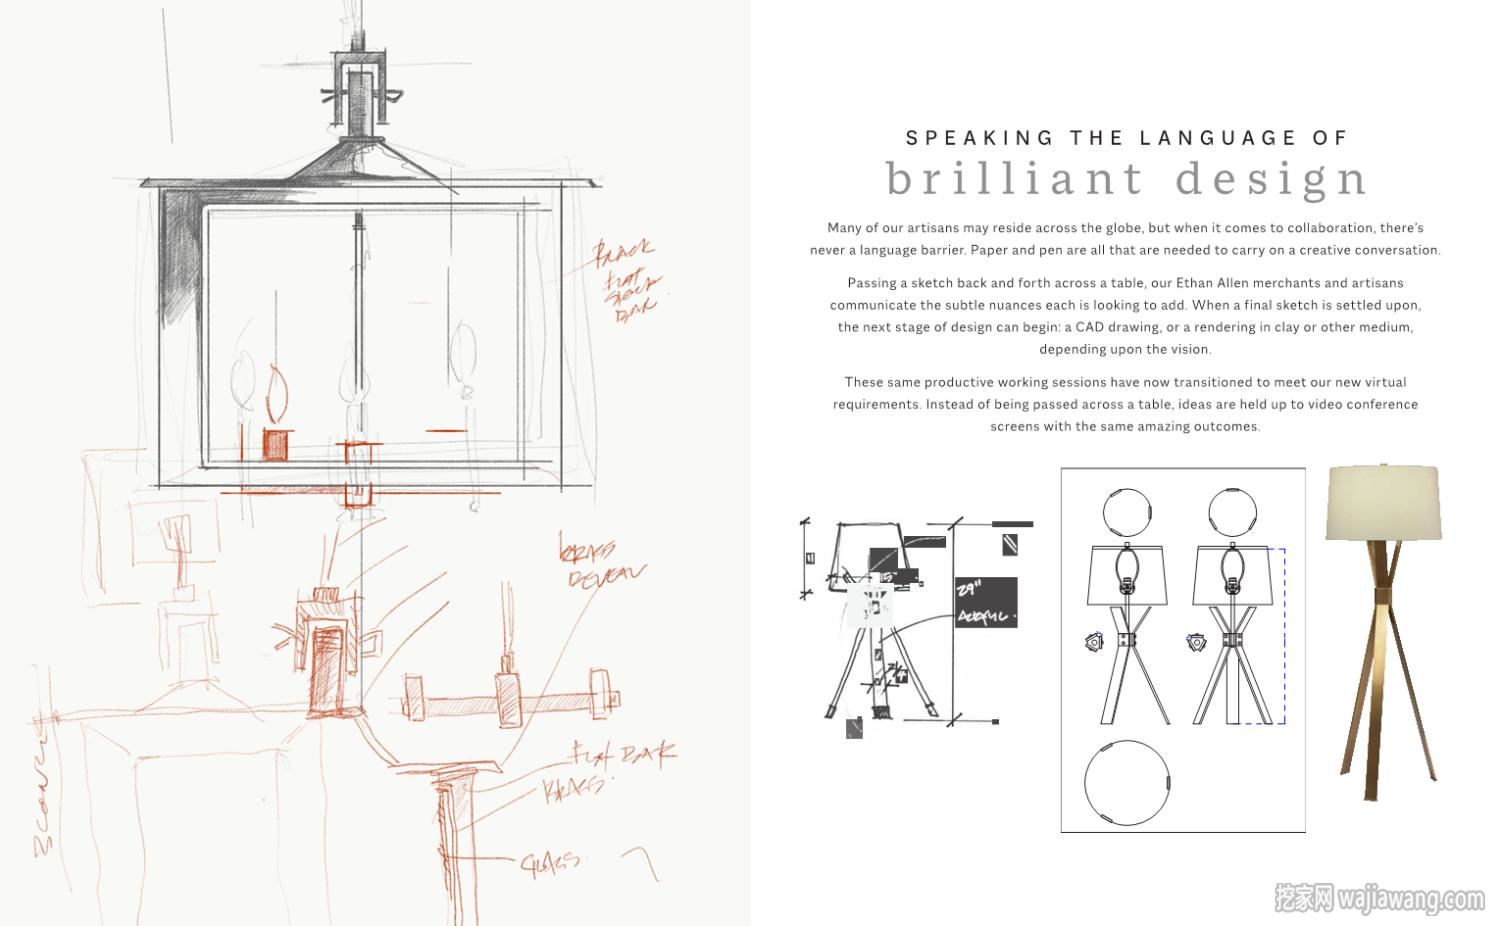 BLACK
FLAT
STOCK
BAR
BRASS
REVEAL
FLAT BAR
BRASS
GLASS
SCONCE
SPEAKING THE LANGUAGE OF
brilliant design
Many of our artisans may reside across the globe, but when it comes to collaboration, there's
never a language barrier. Paper and pen are all that are needed to carry on a creative conversation.
Passing a sketch back and forth across a table, our Ethan Allen merchants and artisans
communicate the subtle nuances each is looking to add. When a final sketch is settled upon,
the next stage of design can begin: a CAD drawing, or a rendering in clay or other medium,
depending upon the vision.
These same productive working sessions have now transitioned to meet our new virtual
requirements. Instead of being passed across a table, ideas are held up to video conference
screens with the same amazing outcomes.
29"
ACRYLIC.
挖家网 wajiawang.com